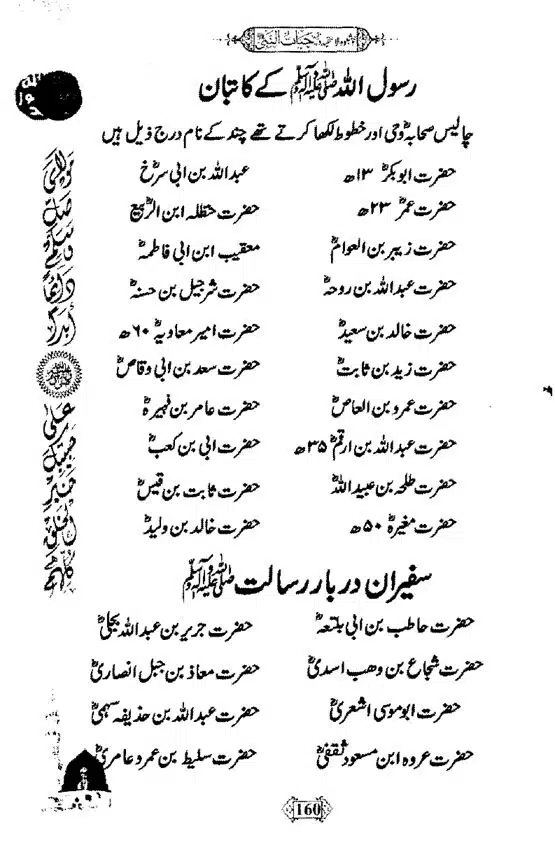 رسول اللہ ﷺ کے کاتبان
چالیس صحابہؓ وحی اور خطوط لکھا کرتے تھے چند کے نام درج ذیل ہیں
حضرت ابوبکرؓ ۱۳ھ عبداللہ بن ابی سرحؓ
حضرت عمرؓ ۲۳ھ حضرت حنظلہ ابن الربیعؓ
حضرت زبیر بن العوامؓ معقیب ابن ابی فاطمہؓ
حضرت عبداللہ بن روحہؓ حضرت شرجیل بن حسنہؓ
حضرت خالد بن سعیدؓ حضرت امیر معاویہؓ ۶۰ھ
حضرت زید بن ثابتؓ حضرت سعد بن ابی وقاصؓ
حضرت عمرو بن العاصؓ حضرت عامر بن فہیرہؓ
حضرت عبداللہ بن ارقمؓ ۳۵ھ حضرت ابی بن کعبؓ
حضرت طلحہ بن عبیداللہؓ حضرت ثابت بن قیسؓ
حضرت مغیرہؓ ۵۰ھ حضرت خالد بن ولیدؓ
سفیران دربار رسالت ﷺ
حضرت حاطب بن ابی بلتعہؓ حضرت جریر بن عبداللہ بجلیؓ
حضرت شجاع بن وھب اسدیؓ حضرت معاذ بن جبل انصاریؓ
حضرت ابوموسی اشعریؓ حضرت عبداللہ بن حذیفہ سہمیؓ
حضرت عروہ ابن مسعود ثقفیؓ حضرت سلیط بن عمرو عامریؓ
160
مولای
صل
وسلم
دائما
أبدا
على
حبيبك
خير
الخلق
كلهم